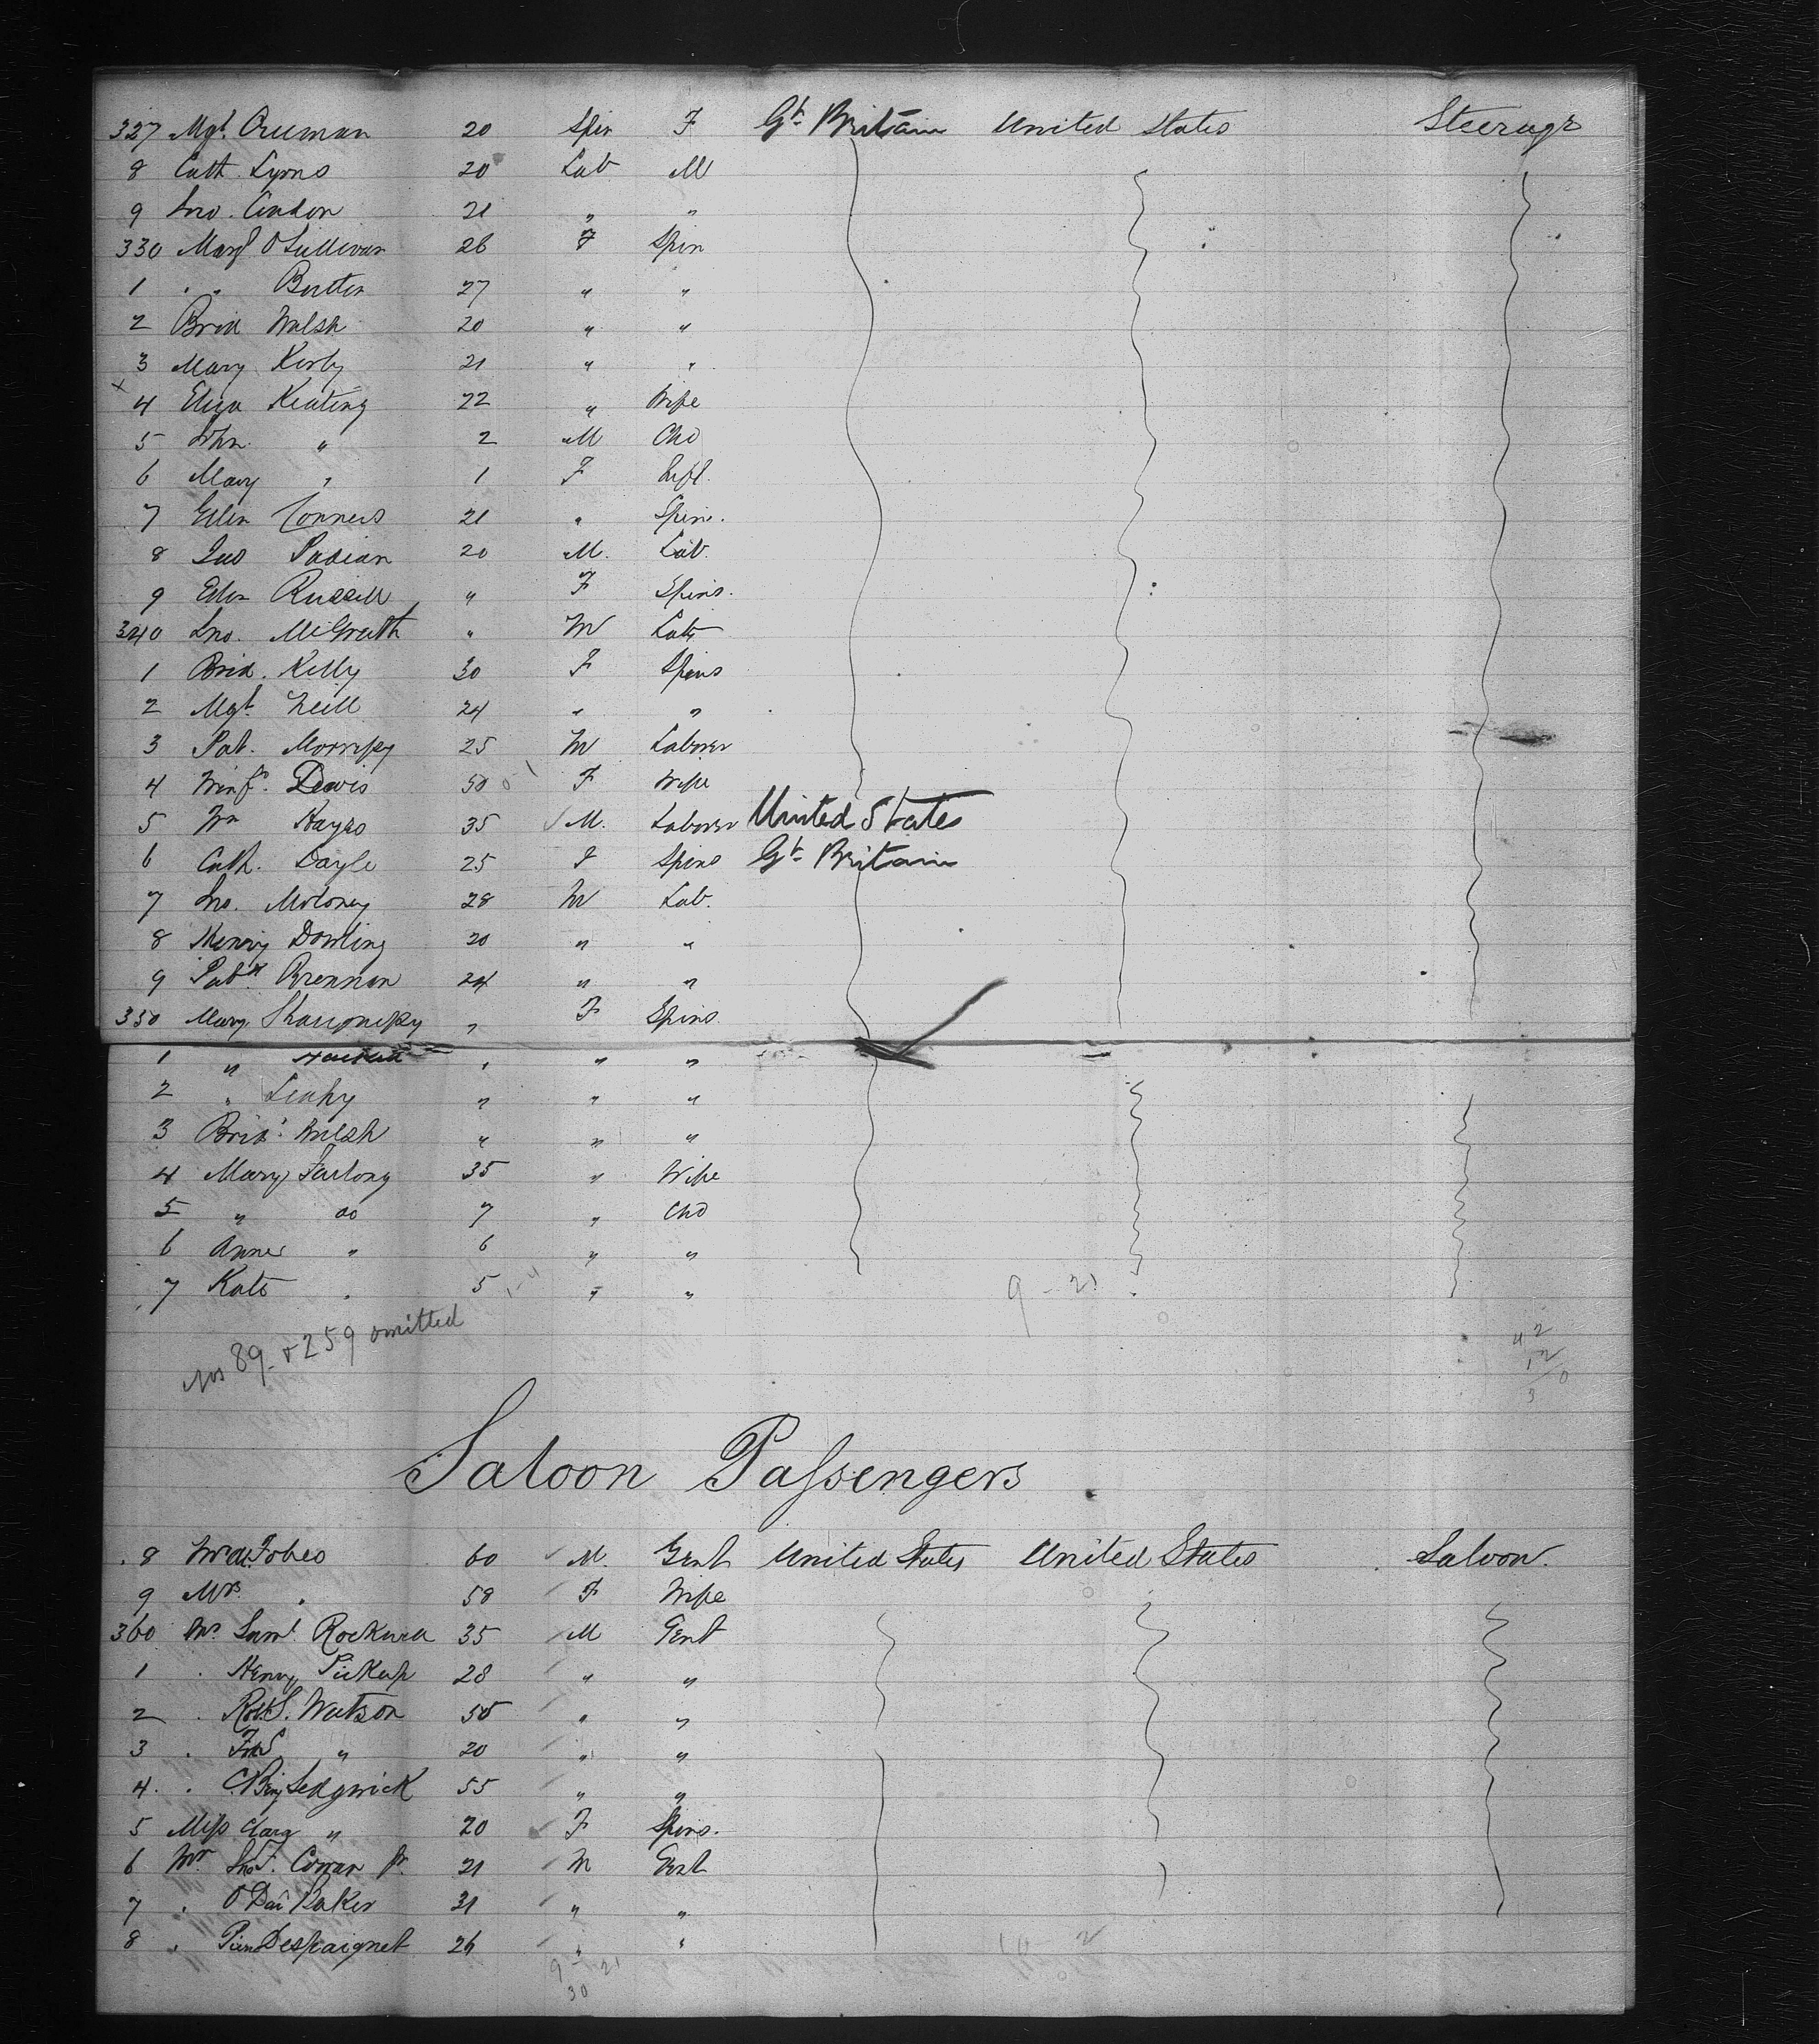 327 Mgt. Cruman 20 Spin F Gt. Britain United States Steerage
8 Cath. Lyons 20 Lab M
9 Jno. Condon 21 " "
330 Margt O'Sullivan 26 F Spin
1 " " 27 " "
2 Brid Walsh 20 " "
3 Mary Kirby 21 " "
x 4 Eliza Keating 22 " Wife
5 John " 2 M Chd
6 Mary " 1 F Inft.
7 Ellen Connors 21 " Spins.
8 20 M. Lab.
9 Ellen Russell " F Spins.
340 Jno. McGrath " M Lab
1 Brid. Kelly 30 F Spins
2 Mgt. Neill 24 " "
3 Pat. Morrissy 25 M Laborer
4 Winfd. Davis 50 F Wife
5 Wm Hayes 35 M. Laborer United States
6 Cath. Dayle 25 F Spins Gt. Britain
7 Jno. Moloney 28 M Lab.
8 Henry Dowling 20 " "
9 Patk. Brennan 24 " "
350 Mary " F Spins.
1 " " " "
2 " Leahy " " "
3 Brid. Walsh " " "
4 Mary Furlong 35 " Wife
5 " do 7 " Chd
6 Anne " 6 " "
7 Kate " 5 " " 9 - 21
Nos 89 & 259 omitted
Saloon Passengers
8 Wm. Fobes 60 M. Gent United States United States Saloon.
9 Mrs. " 58 F Wife
360 Mr. Saml. 35 M Gent
1 " Henry Pickup 28 " "
2 " Robt. S. Watson 55 " "
3 " " 20 " "
4 " C. Benj Sedgwick 55 " "
5 Miss Clara " 20 F Spins.
6 Mr. Jno F. Jr. 21 M Gent
7 " Baker 31 " "
8 " Despaignet 26 " "
9 - 21
30